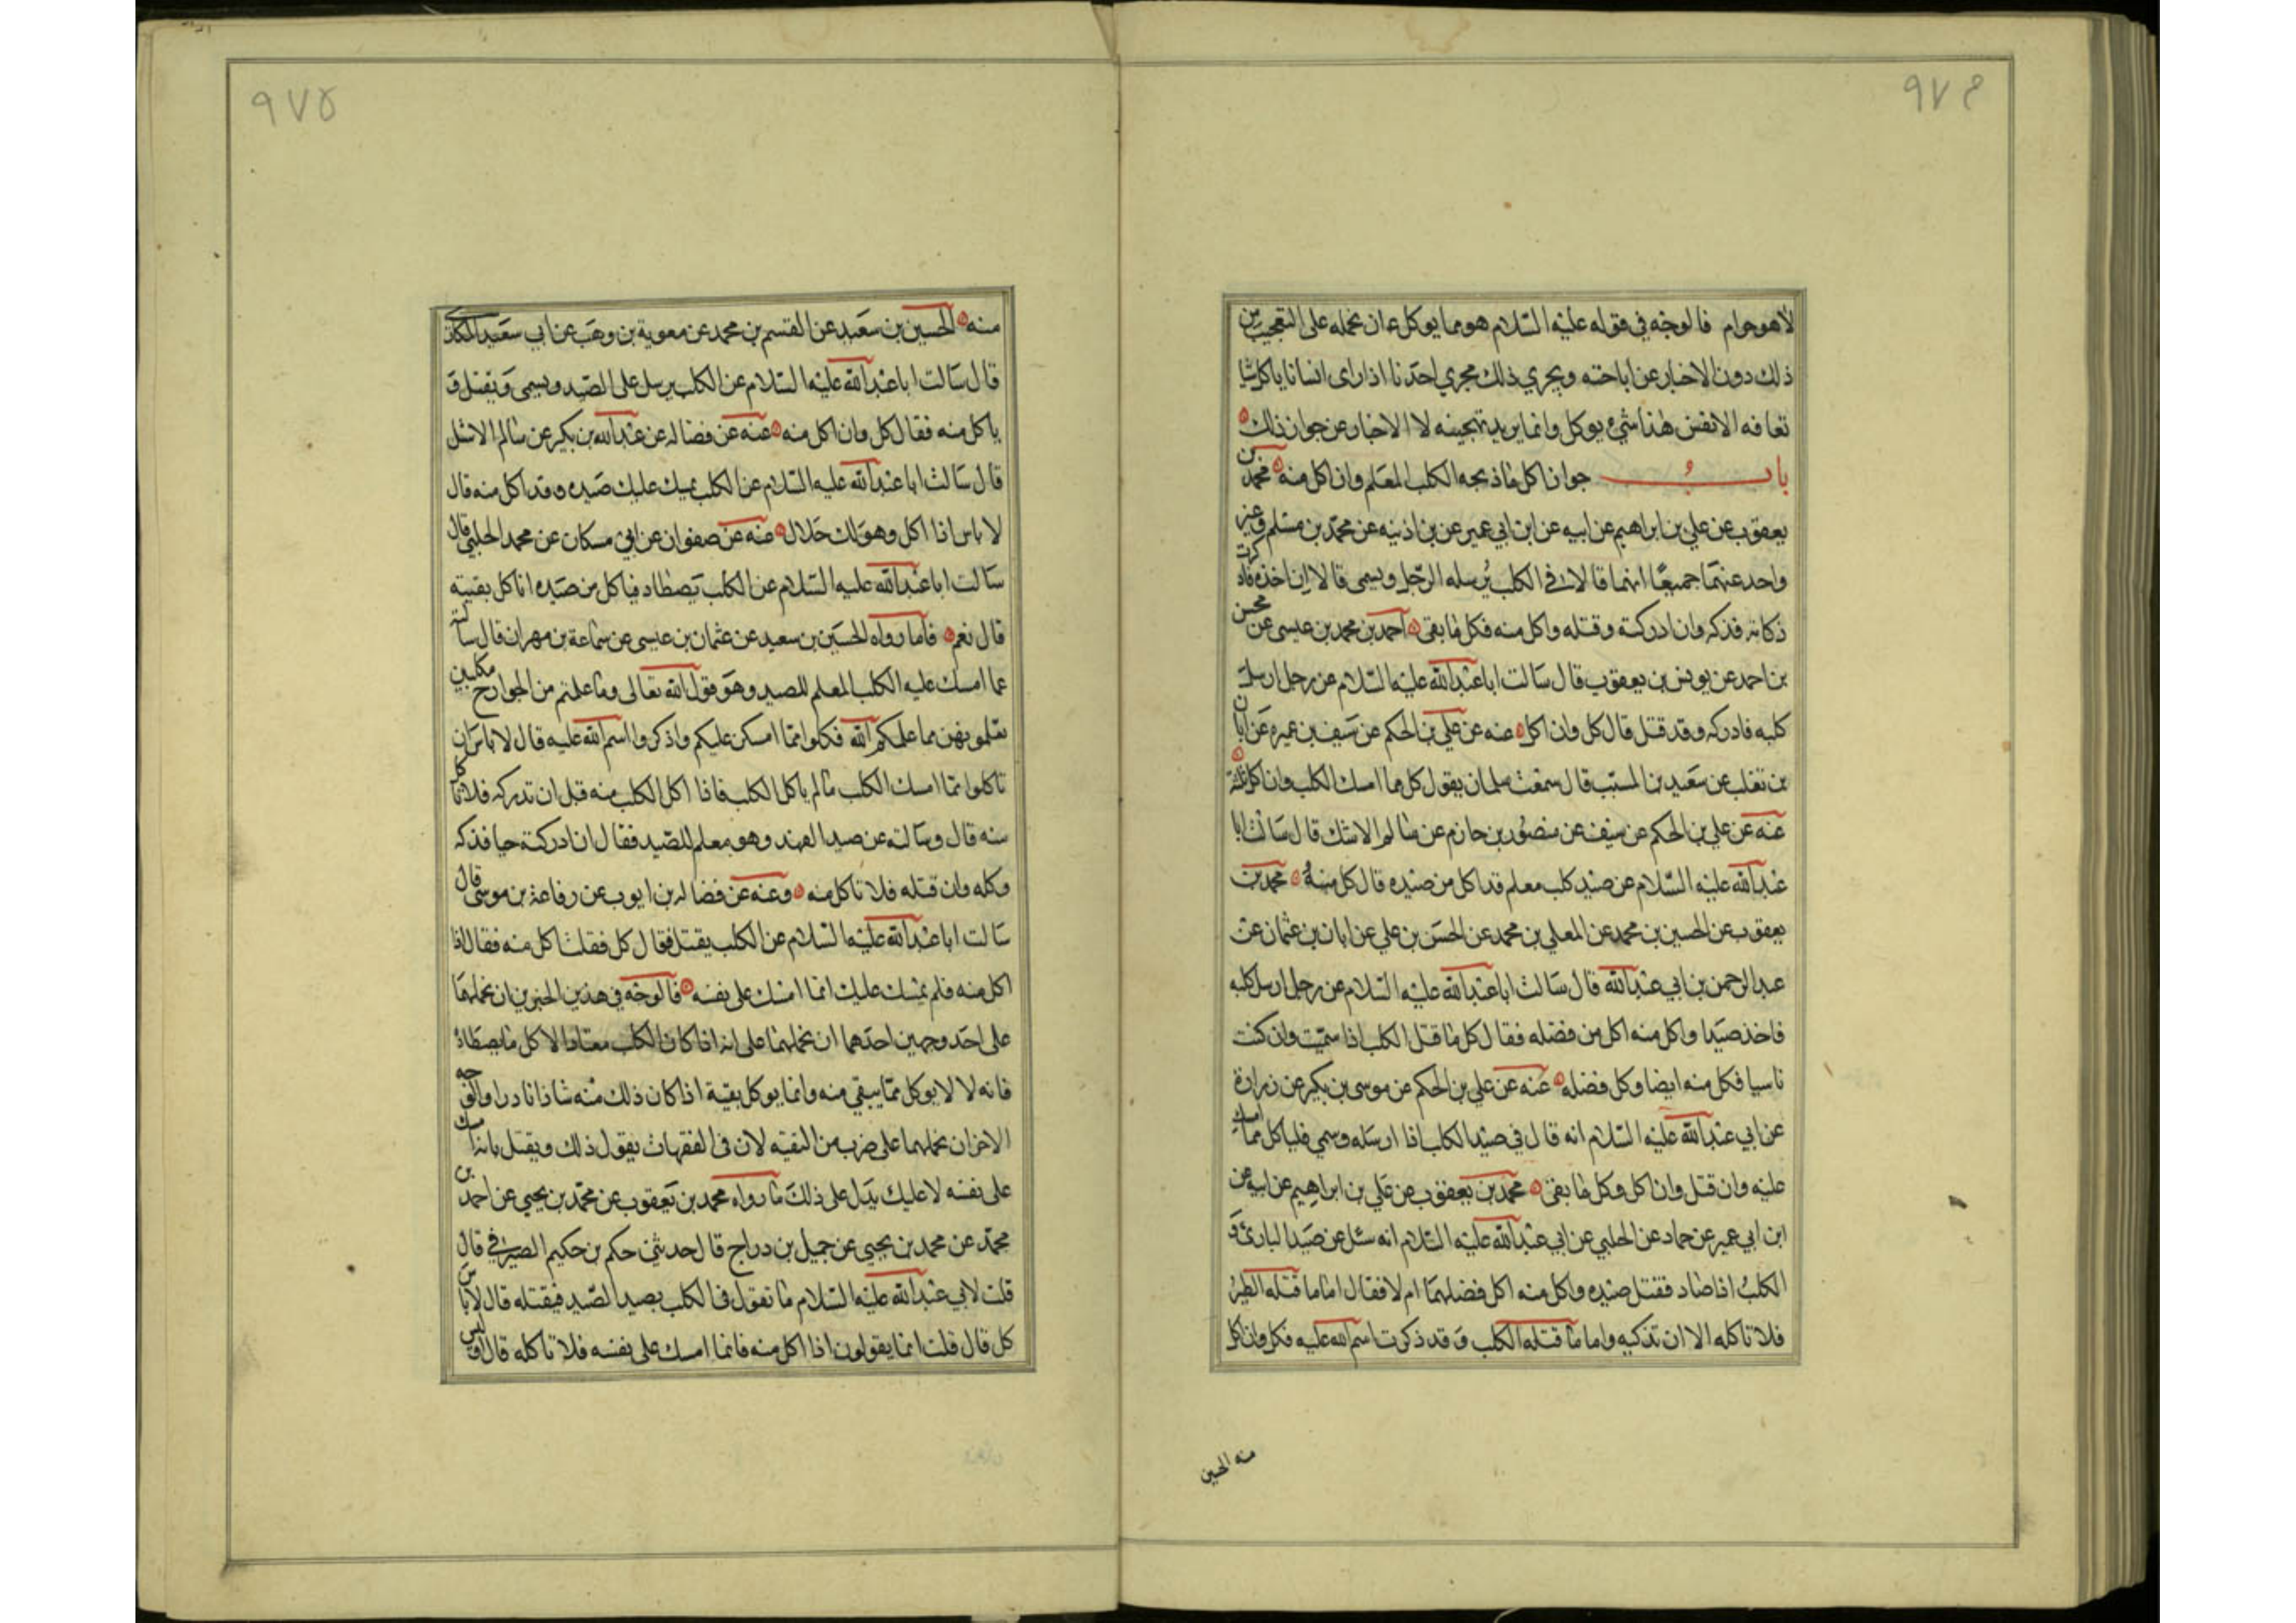 ٩٧٤
لا هو حرام فالوجه في قوله عليه السلام هو مما يوكل ان نحمله على التعجب من
ذلك دون الاخبار عن اباحته ويجري ذلك مجري احدنا اذا راى انسانا ياكل شيا
تعافه الانفس هذا شيء يوكل وانما يريد تهجينه لا الاخبار عن جواز ذلك
باب جواز اكل ما ذبحه الكلب المعلم وان اكل منه محمد بن
يعقوب عن علي بن ابراهيم عن ابيه عن ابن ابي عمير عن بن اذينه عن محمد بن مسلم وغير
واحد عنهما جميعا انهما قالا في الكلب يرسله الرجل ويسمى قالا ان اخذه فادركت
ذكاته فذكه وان ادركته وقتله واكل منه فكل ما بقى احمد بن محمد بن عيسى عن محسن
بن احمد عن يونس بن يعقوب قال سالت ابا عبد الله عليه السلام عن رجل ارسل
كلبه فادركه وقد قتل قال كل وان اكل عنه عن علي بن الحكم عن سيف بن عميره عن ابان
بن تغلب عن سعيد بن المسيب قال سمعت سلمان يقول كل مما امسك الكلب وان اكل ثلثه
عنه عن علي بن الحكم عن سيف عن منصور بن حازم عن سالم الاشل قال سالت ابا
عبد الله عليه السلام عن صيد كلب معلم قد اكل من صيده قال كل منه محمد بن
يعقوب عن الحسين بن محمد عن المعلي بن محمد عن الحسن بن علي عن ابان بن عثمان عن
عبد الرحمن بن ابي عبد الله قال سالت ابا عبد الله عليه السلام عن رجل ارسل كلبه
فاخذ صيدا واكل منه اكل من فضله فقال كل ما قتل الكلب اذا سميت وان كنت
ناسيا فكل منه ايضا وكل فضله عنه عن علي بن الحكم عن موسى بن بكير عن زرارة
عن ابي عبد الله عليه السلام انه قال في صيد الكلب اذا ارسله وسمي فلياكل مما امسك
عليه وان قتل وان اكل وكل ما بقى محمد بن يعقوب عن علي بن ابراهيم عن ابيه عن
ابن ابي عمير عن حماد عن الحلبي عن ابي عبد الله عليه السلام انه سئل عن صيد البازي و
الكلب اذا صاد فقتل صيده واكل منه اكل فضلهما ام لا فقال اما ما قتله الطير
فلا تاكله الا ان تذكيه واما ما قتله الكلب وقد ذكرت اسم الله عليه فكل وان اكل
منه الحسين
٩٧٥
منه الحسين بن سعيد عن القسم بن محمد عن معوية بن وهب عن ابي سعيد المكاري
قال سالت ابا عبد الله عليه السلام عن الكلب يرسل على الصيد ويسمى ويقتل و
ياكل منه فقال كل وان اكل منه عنه عن فضاله عن عبد الله بن بكير عن سالم الاشل
قال سالت ابا عبد الله عليه السلام عن الكلب يمسك عليك صيده وقد اكل منه قال
لا باس اذا اكل وهو لك حلال منه عن صفوان عن ابي مسكان عن محمد الحلبي قال
سالت ابا عبد الله عليه السلام عن الكلب يصطاد فياكل من صيده اناكل بقيته
قال نعم فاما رواه الحسين بن سعيد عن عثمان بن عيسى عن سماعة بن مهران قال سالته
عما امسك عليه الكلب المعلم للصيد وهو قول الله تعالى وما علمتم من الجوارح مكلبين
تعلمونهن مما علمكم الله فكلوا مما امسكن عليكم واذكروا اسم الله عليه قال لا باس ان
تاكلوا مما امسك الكلب ما لم ياكل الكلب فاذا اكل الكلب منه قبل ان تدركه فلا تاكل
منه قال وسالته عن صيد الفهد وهو معلم للصيد فقال ان ادركته حيا فذكه
وكله وان قتله فلا تاكل منه وعنه عن فضاله بن ايوب عن رفاعة بن موسى قال
سالت ابا عبد الله عليه السلام عن الكلب يقتل فقال كل فقلت اكل منه فقال اذا
اكل منه فلم يمسك عليك انما امسك على نفسه فالوجه في هذين الخبرين ان نحملهما
على احد وجهين احدهما ان نحملهما على انه اذا كان الكلب معتادا لاكل ما يصطاده
فانه لا لا يوكل مما يبقي منه وانما يوكل بقية اذا كان ذلك منه شاذا نادرا والوجه
الاخر ان نحملهما على ضرب من التقيه لان في الفقهاء من يقول ذلك ويقتل بانه امسك
على نفسه لا عليك يدل على ذلك ما رواه محمد بن يعقوب عن محمد بن يحيى عن احمد بن
محمد عن محمد بن يحيى عن جميل بن دراج قال حدثني حكم بن حكيم الصيرفي قال
قلت لابي عبد الله عليه السلام ما تقول في الكلب يصيد الصيد فيقتله قال لا باس
كل قال قلت انما يقولون اذا اكل منه فانما امسك على نفسه فلا تاكله قال او ليس